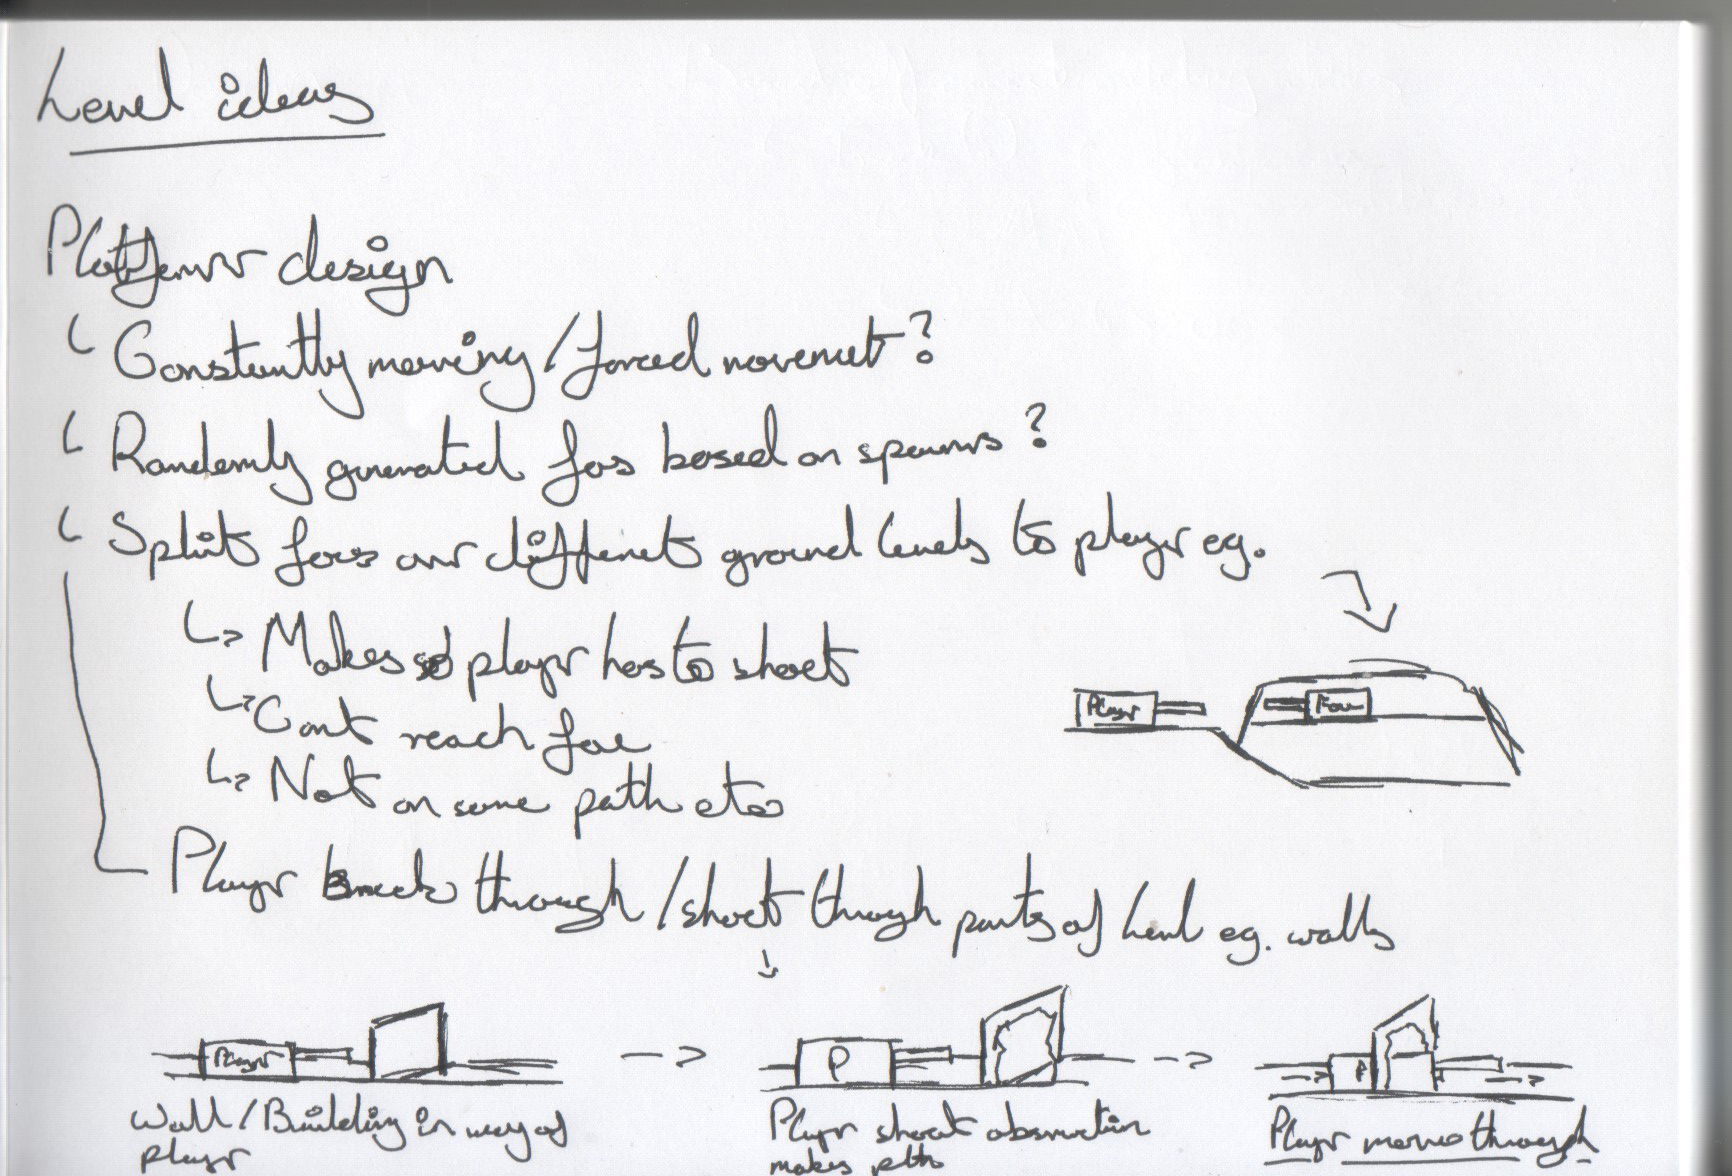 Level ideas
Platform design
Constantly moving / forced movement?
Randomly generated foes based on spawns?
Split foes over different ground levels to player eg.
Makes so player has to shoot
Cant reach foe
Not on same path etc
Player Foe
Player break through / shoot through parts of level eg. walls
Player P P
Wall / Building in way of player shoot obstruction Player moves through
player makes path